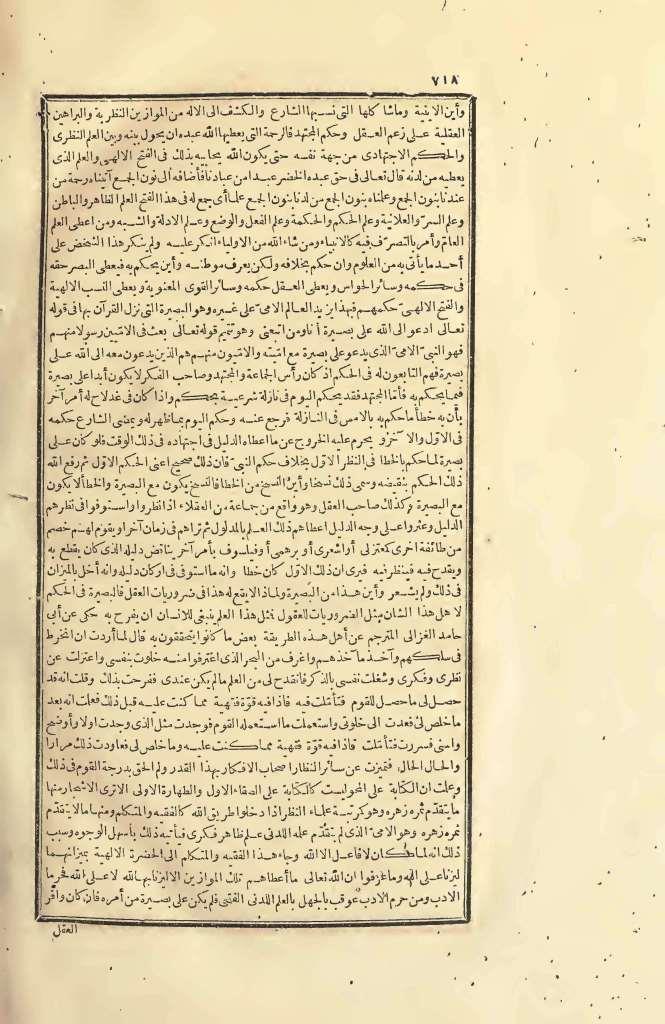 ٧١٨
وأين الابنية وماشا كلها التى نسبها الشارع والكشف الى الاله من الموازين النظرية والبراهين
العقلية على زعم العقل وحكم المجتهد فالرحمة التى يعطيها الله عبده ان يحول بينه وبين العلم النظرى
والحكم الاجتهادى من جهة نفسه حتى يكون الله يحابيه بذلك فى الفتح الالهى والعلم الذى
يعطيه من لدنه قال تعالى فى حق عبده الخضر عبدا من عبادنا فأضافه الى نون الجمع آتيناه رحمة من
عندنا بنون الجمع وعلمناه بنون الجمع من لدنا بنون الجمع علما أى جمع له فى هذا الفتح العلم الظاهر والباطن
وعلم السر والعلانية وعلم الحكم والحكمة وعلم العقل والوضع وعلم الادلة والشبه ومن اعطى العلم
العام وأمر بالتصرف فيه كالانبياء ومن شاء الله من الاولياء انكر عليه ولم ينكر هذا الشخص على
أحد ما يأتى به من العلوم وان حكم بخلافه ولكن يعرف موطنه وأين يحكم به فيعطى البصر حقه
فى حكمه وسائر الحواس ويعطى العقل حكمه وسائر القوى المعنوية ويعطى النسب الالهية
والفتح الالهى حكمهم فبهذا يزيد العالم الامى على غيره وهو البصيرة التى نزل القرآن بها فى قوله
تعالى ادعو الى الله على بصيرة أنا ومن اتبعنى وهو تتميم قوله تعالى بعث فى الاميين رسولا منهم
فهو النبى الامى الذى يدعو على بصيرة مع اميته والاميون منهم هم الذين يدعون معه الى الله على
بصيرة فهم التابعون له فى الحكم اذ كان رأس الجماعة والمجتهد وصاحب الفكر لا يكون أبدا على بصيرة
فيما يحكم به فأما المجتهد فقد يحكم اليوم فى نازلة شرعية بحكم واذا كان فى غد لاح له أمر آخر
بأن به خطأ ما حكم به بالامس فى النازلة فرجع عنه وحكم اليوم بما ظهر له ويمضى الشارع حكمه
فى الاول والا آخر و يحرم عليه الخروج عن ما اعطاه الدليل فى اجتهاده فى ذلك الوقت فلو كان على
بصيرة لما حكم بالخطا فى النظر الاول بخلاف حكم النبى فان ذلك صحيح اعنى الحكم الاول ثم رفع الله
ذلك الحكم بنقيضه وسمى ذلك نسخا وأين النسخ من الخطا فالنسخ يكون مع البصيرة والخطأ لا يكون
مع البصيرة وكذلك صاحب العقل وهو واقع من جماعة من العقلاء اذا نظروا واستوفوا فى نظرهم
الدليل وعثروا على وجه الدليل اعطاهم ذلك العلم بالمدلول ثم تراهم فى زمان آخر او يقوم لهم خصم
من طائفة اخرى كمعتزلى أو اشعرى أو برهمى أو فيلسوف بأمر آخر يناقض دليله الذى كان يقطع به
ويقدح فيه فينظر فيه فيرى ان ذلك الاول كان خطا وانه ما استوفى فى اركان دليله وانه أخل بالميزان
فى ذلك ولم يشعر وأين هذا من البصيرة ولماذا لا يقع له هذا فى ضروريات العقل فالبصيرة فى الحكم
لا هل هذا الشان مثل الضروريات للعقول فمثل هذا العلم ينبغى للانسان ان يفرح به حكى عن أبى
حامد الغزالى المترجم عن أهل هذه الطريقة بعض ما كانوا يتحققون به قال لما أردت ان انخرط
فى سلكهم وآخذ مأخذهم واغرف من البحر الذى اغترفوا منه خلوت بنفسى واعتزلت عن
نظرى وفكرى وشغلت نفسى بالذكر فانقدح لى من العلم ما لم يكن عندى ففرحت بذلك وقلت انه قد
حصل لى ما حصل للقوم فتأملت فيه فاذا فيه قوة فقهية مما كنت عليه قبل ذلك فعلمت انه بعد
ما خلص لى فعدت الى خلوتى واستعملت ما استعمله القوم فوجدت مثل الذى وجدت اولا وأوضح
واسنى فسررت فتأملت فاذا فيه قوة فقهية مما كنت عليه وما خلص لى فعاودت ذلك مرارا
والحال الحال فتميزت عن سائر النظار اصحاب الافكار بهذا القدر ولم الحق بدرجة القوم فى ذلك
وعلمت ان الكتابة على المحو ليست كالكتابة على الصفاء الاول والطهارة الاولى الاترى الاشجار منها
ما يتقدم ثمره زهره وهو كمرتبة علماء النظر اذا دخلوا طريق الله كالفقيه والمتكلم ومنها ما لا يتقدم
ثمره زهره وهو الامى الذى لم يتقدم علمه اللدنى علم ظاهر فكرى فيأتيه ذلك بأسهل الوجوه وسبب
ذلك انه لما كان لا فاعل الا الله وجاء هذا الفقيه والمتكلم الى الحضرة الالهية بميزانهما
ليزنا على الله وما عرفوا ان الله تعالى ما أعطاهم تلك الموازين الا ليزنا بها لله لا على الله فحرما
الادب ومن حرم الادب عوقب بالجهل بالعلم اللدنى الفتحى فلم يكن على بصيرة من أمره فان كان وافر
العقل